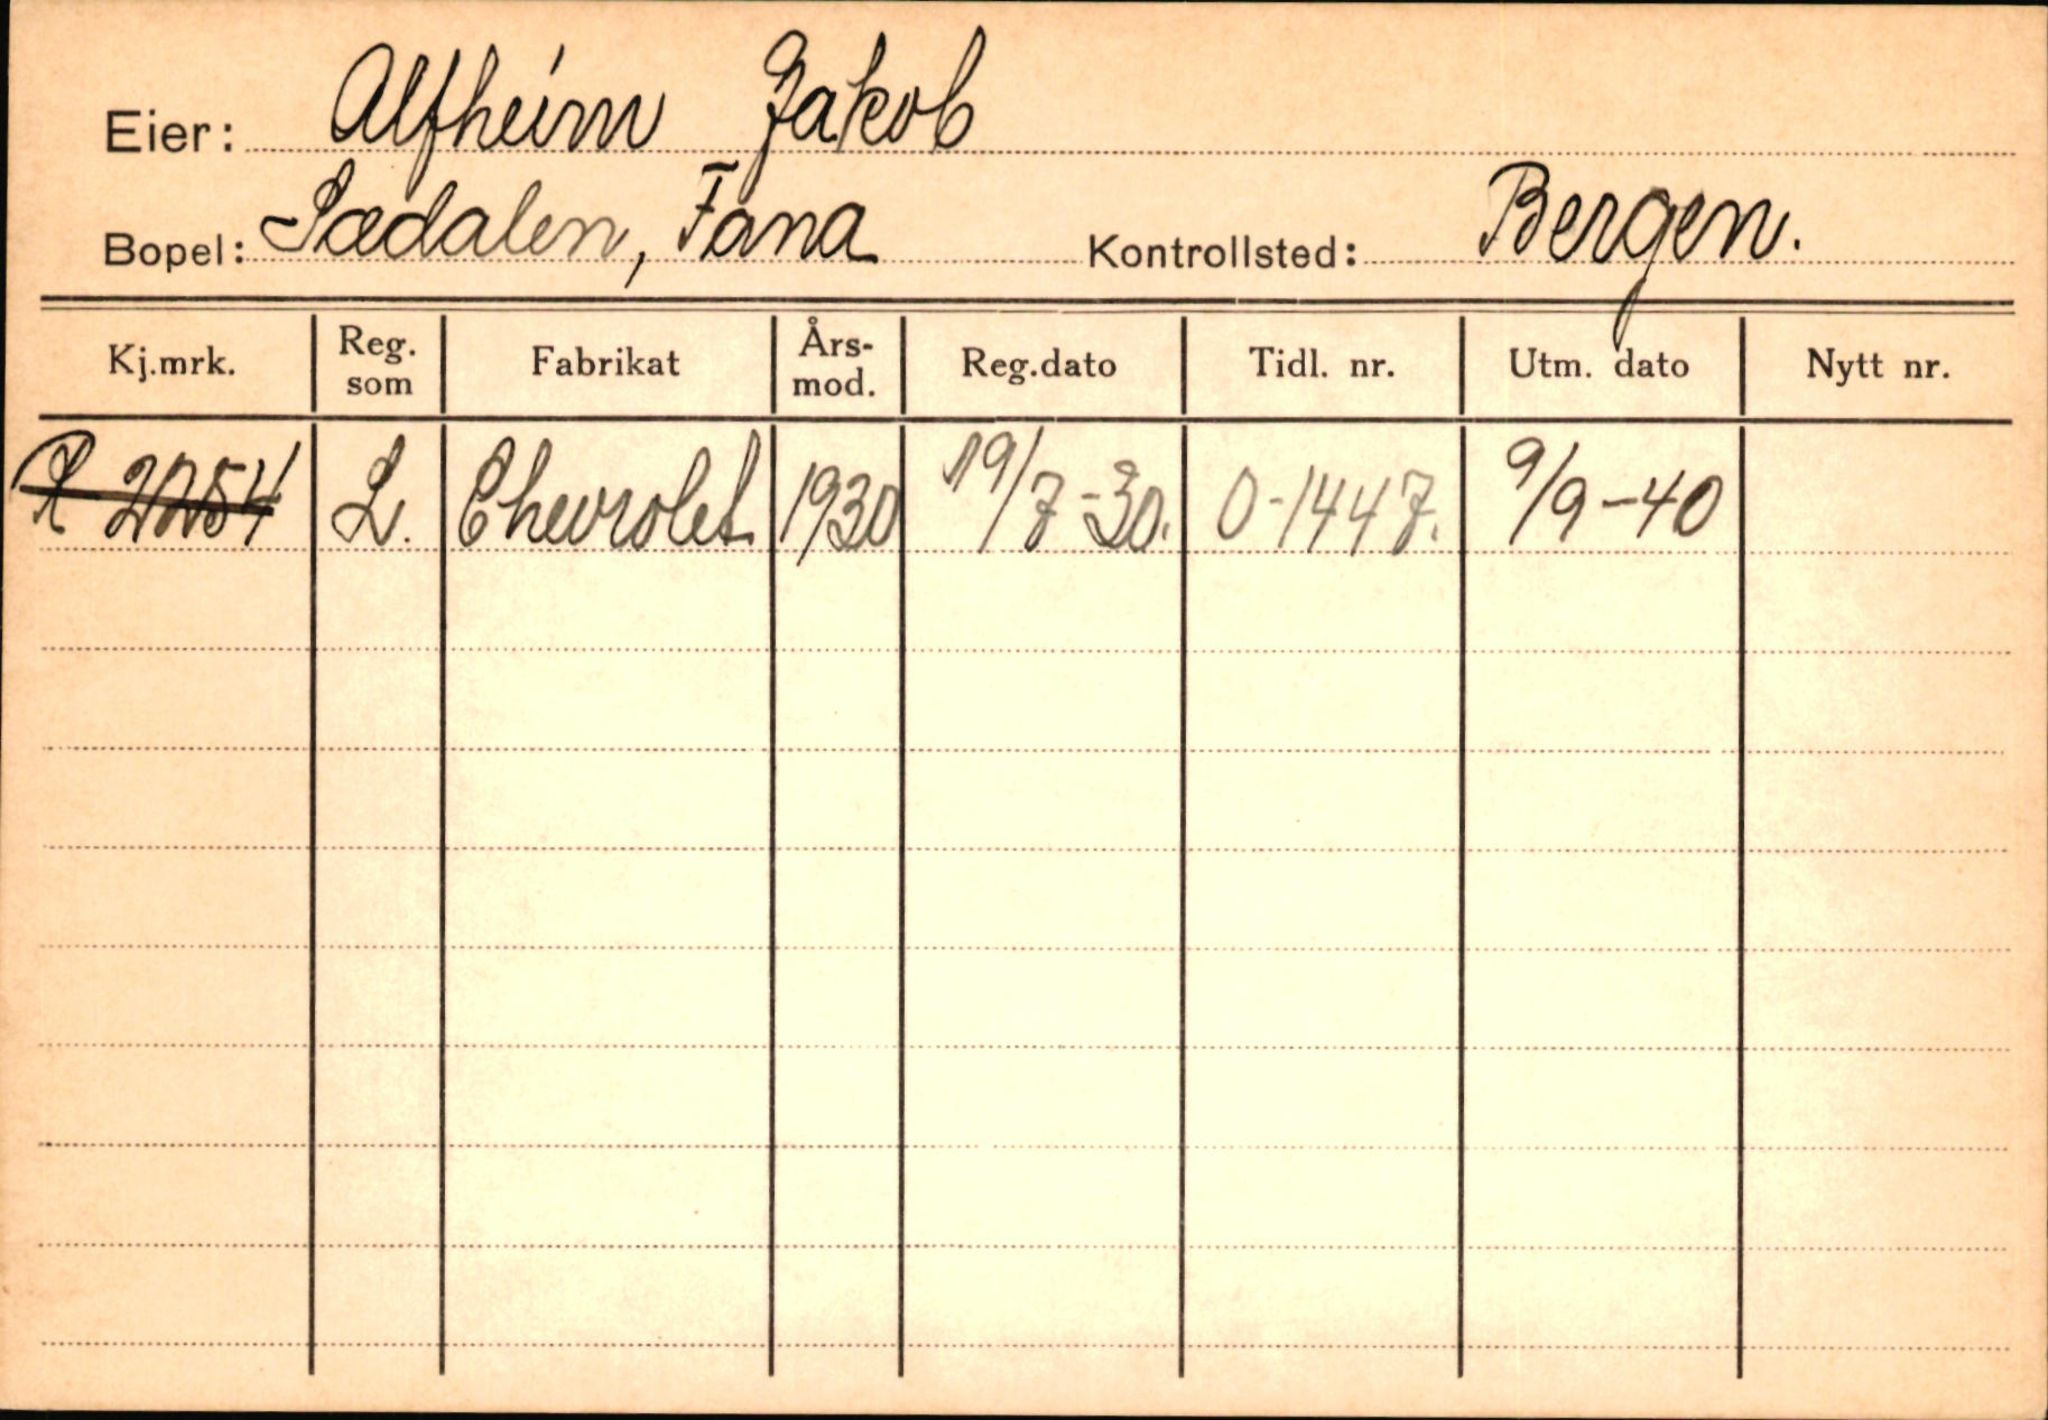 Eier: Alfheim Jakob
Bopel: Sædalen, Fana Kontrollsted: Bergen.
Kj.mrk. Reg. som Fabrikat Års-mod. Reg.dato Tidl. nr. Utm. dato Nytt nr.
R 2254 L. Chevrolet 1930 19/7-30. O-1447. 9/9-40